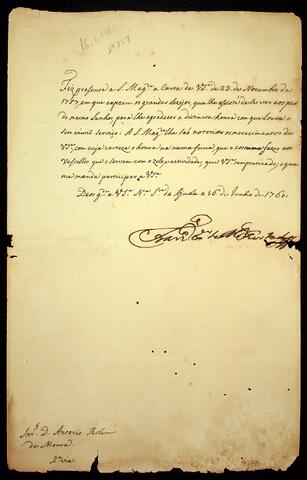 16-6-1760
Fiz presente a S. Mag.e a Carta de V.S.a de 23 de Novembro de
1757, em que expoem os grandes dezejos, que lhe assistem de se ver aos pés
do mesmo Senhor, para lhe agradecer a distincta honra com que louva o
seu inutil serviço: A S. Mag.e lhe saõ notorios os merecimentos de
V.S.a, com cuja certeza o honra na mesma forma que o costuma fazer aos
Vassallos que o servem com o zelo, e actividade, que V.S.a tem praticado; o que
me manda participar a V.S.a
Deos g.e a V.S.a N. Sr.a da Ajuda a 16 de Junho de 1760.
Snr. D. Antonio Rolim
de Moura
2.a via